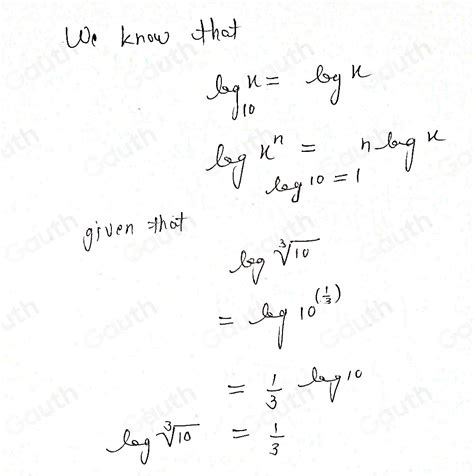 We know that
log₁₀ x = log x
log xⁿ = n log x
log 10 = 1
given that
log ∛10
= log 10^(1/3)
= 1/3 log 10
log ∛10 = 1/3